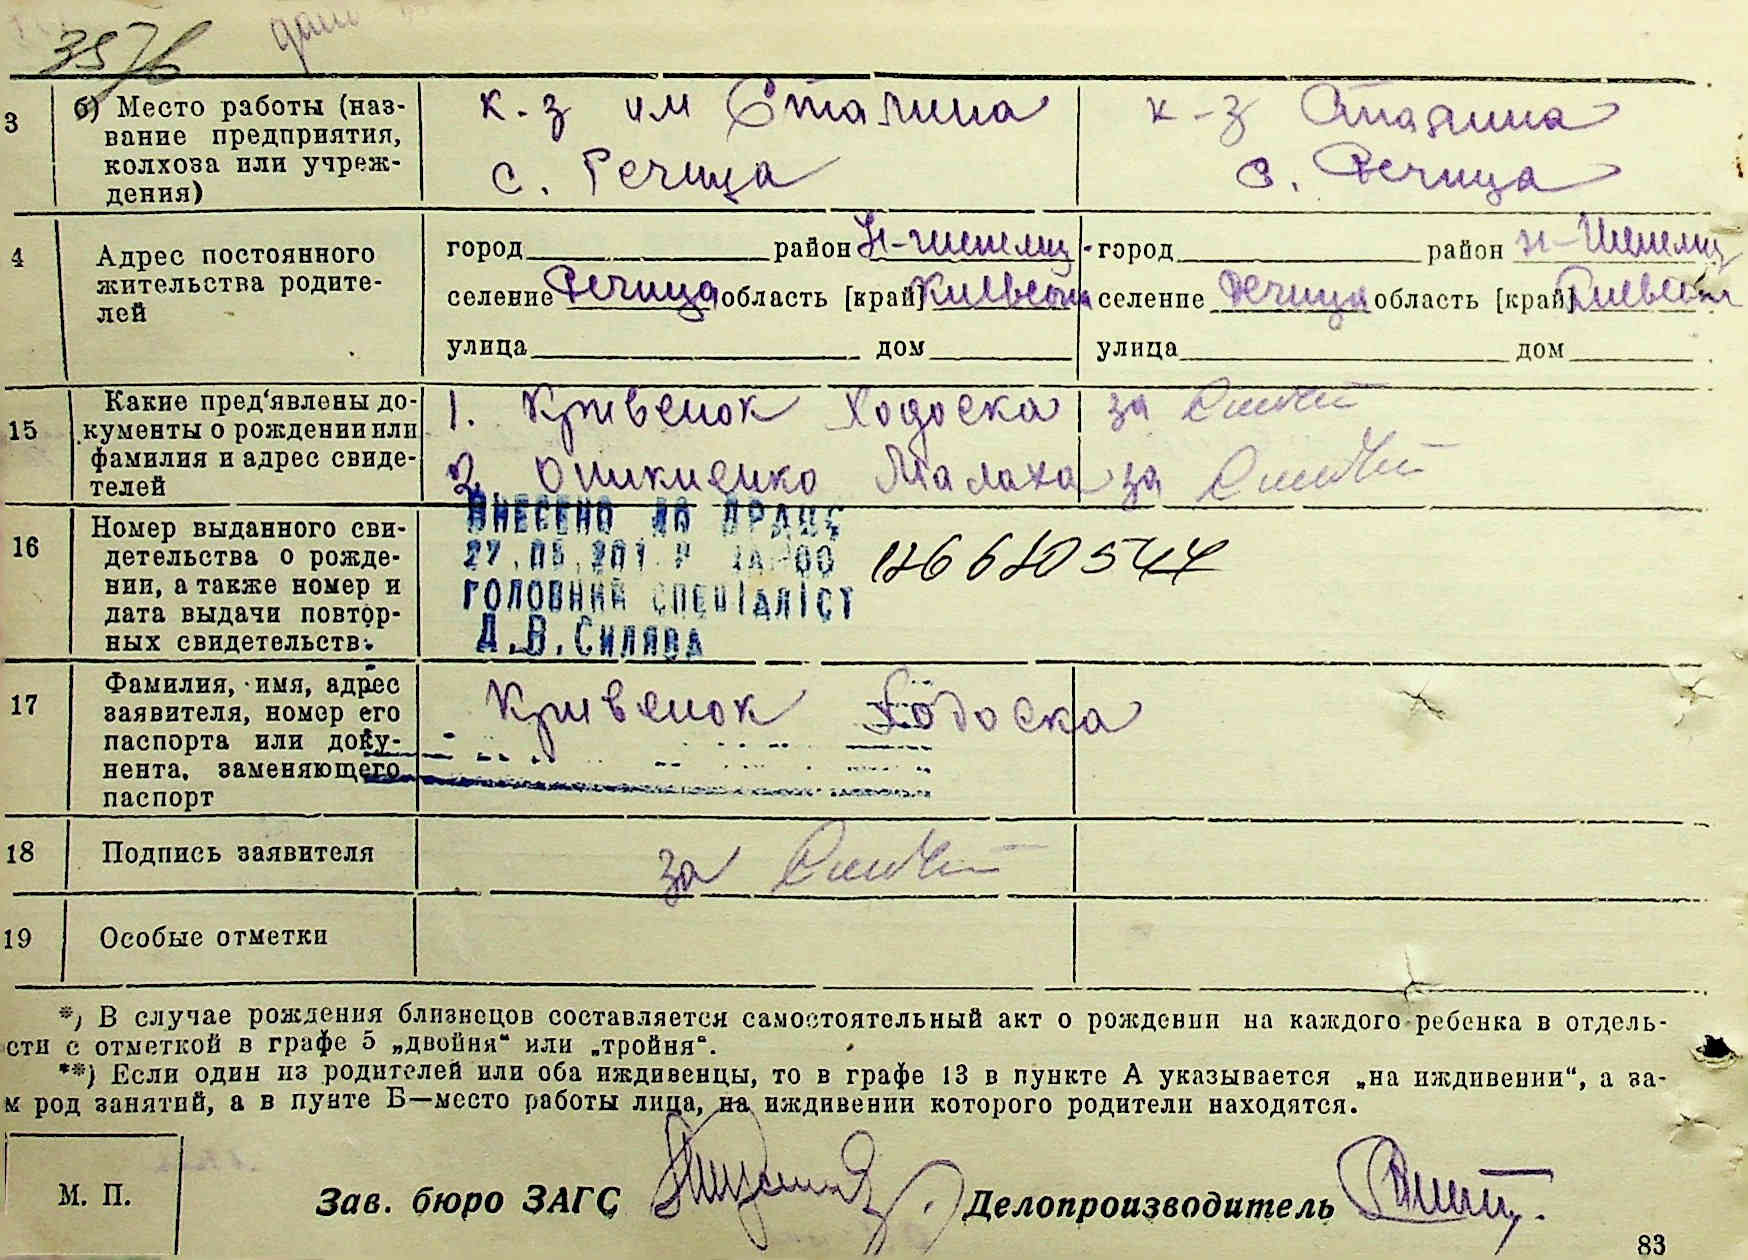 3576
3 б) Место работы (наз-
вание предприятия,
колхоза или учреж-
дения)
к-з им Сталина
с. Речица
к-з Сталина
с. Речица
4 Адрес постоянного
жительства родите-
лей
город район Н-Шепелиц
селение Речица область [край]
улица дом
город район Н-Шепелиц
селение Речица область [край]
улица дом
15 Какие пред'явлены до-
кументы о рождении или
фамилия и адрес свиде-
телей
1. Кривенок Ходоска за
2. Малаха за
16 Номер выданного сви-
детельства о рожде-
нии, а также номер и
дата выдачи повтор-
ных свидетельств.
ВНЕСЕНО ДО ДРАЦС
ГОЛОВНИЙ СПЕЦІАЛІСТ
Д.В.Силява
17 Фамилия, имя, адрес
заявителя, номер его
паспорта или доку-
нента, заменяющего
паспорт
Кривенок Ходоска
18 Подпись заявителя
за
19 Особые отметки
*) В случае рождения близнецов составляется самостоятельный акт о рождении на каждого ребенка в отдель-
сти с отметкой в графе 5 „двойня“ или „тройня“.
**) Если один из родителей или оба иждивенцы, то в графе 13 в пункте А указывается „на иждивении“, а за-
м род занятий, а в пункте Б—место работы лица, на иждивении которого родители находятся.
М. П.
Зав. бюро ЗАГС Делопроизводитель
83